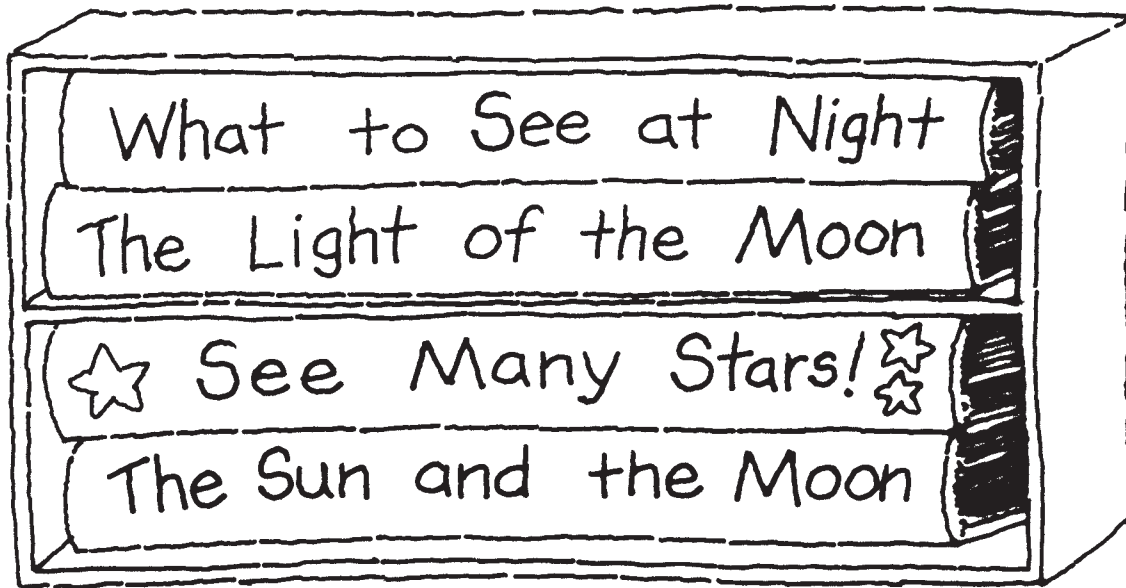 What to See at Night
The Light of the Moon
See Many Stars!
The Sun and the Moon